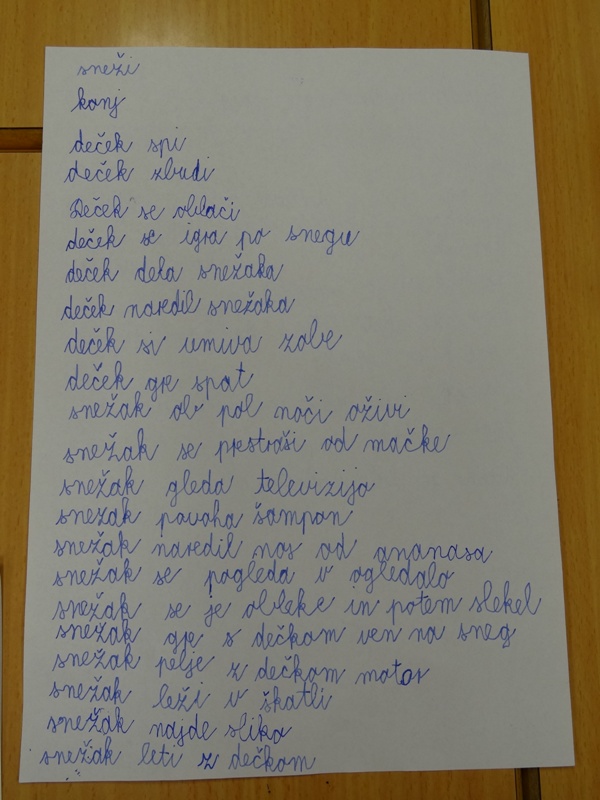 sneži
konj
deček spi
deček zbudi
Deček se oblači
deček se igra po snegu
deček dela snežaka
deček naredil snežaka
deček si umiva zobe
deček gre spat
snežak ob pol noči oživi
snežak se prestraši od mačke
snežak gleda televizijo
snežak povoha šampon
snežak naredil nos od ananasa
snežak se pogleda v ogledalo
snežak se je obleke in potem slekel
snežak gre s dečkom ven na sneg
snežak pelje z dečkom motor
snežak leži v škatli
snežak najde slika
snežak leti z dečkom